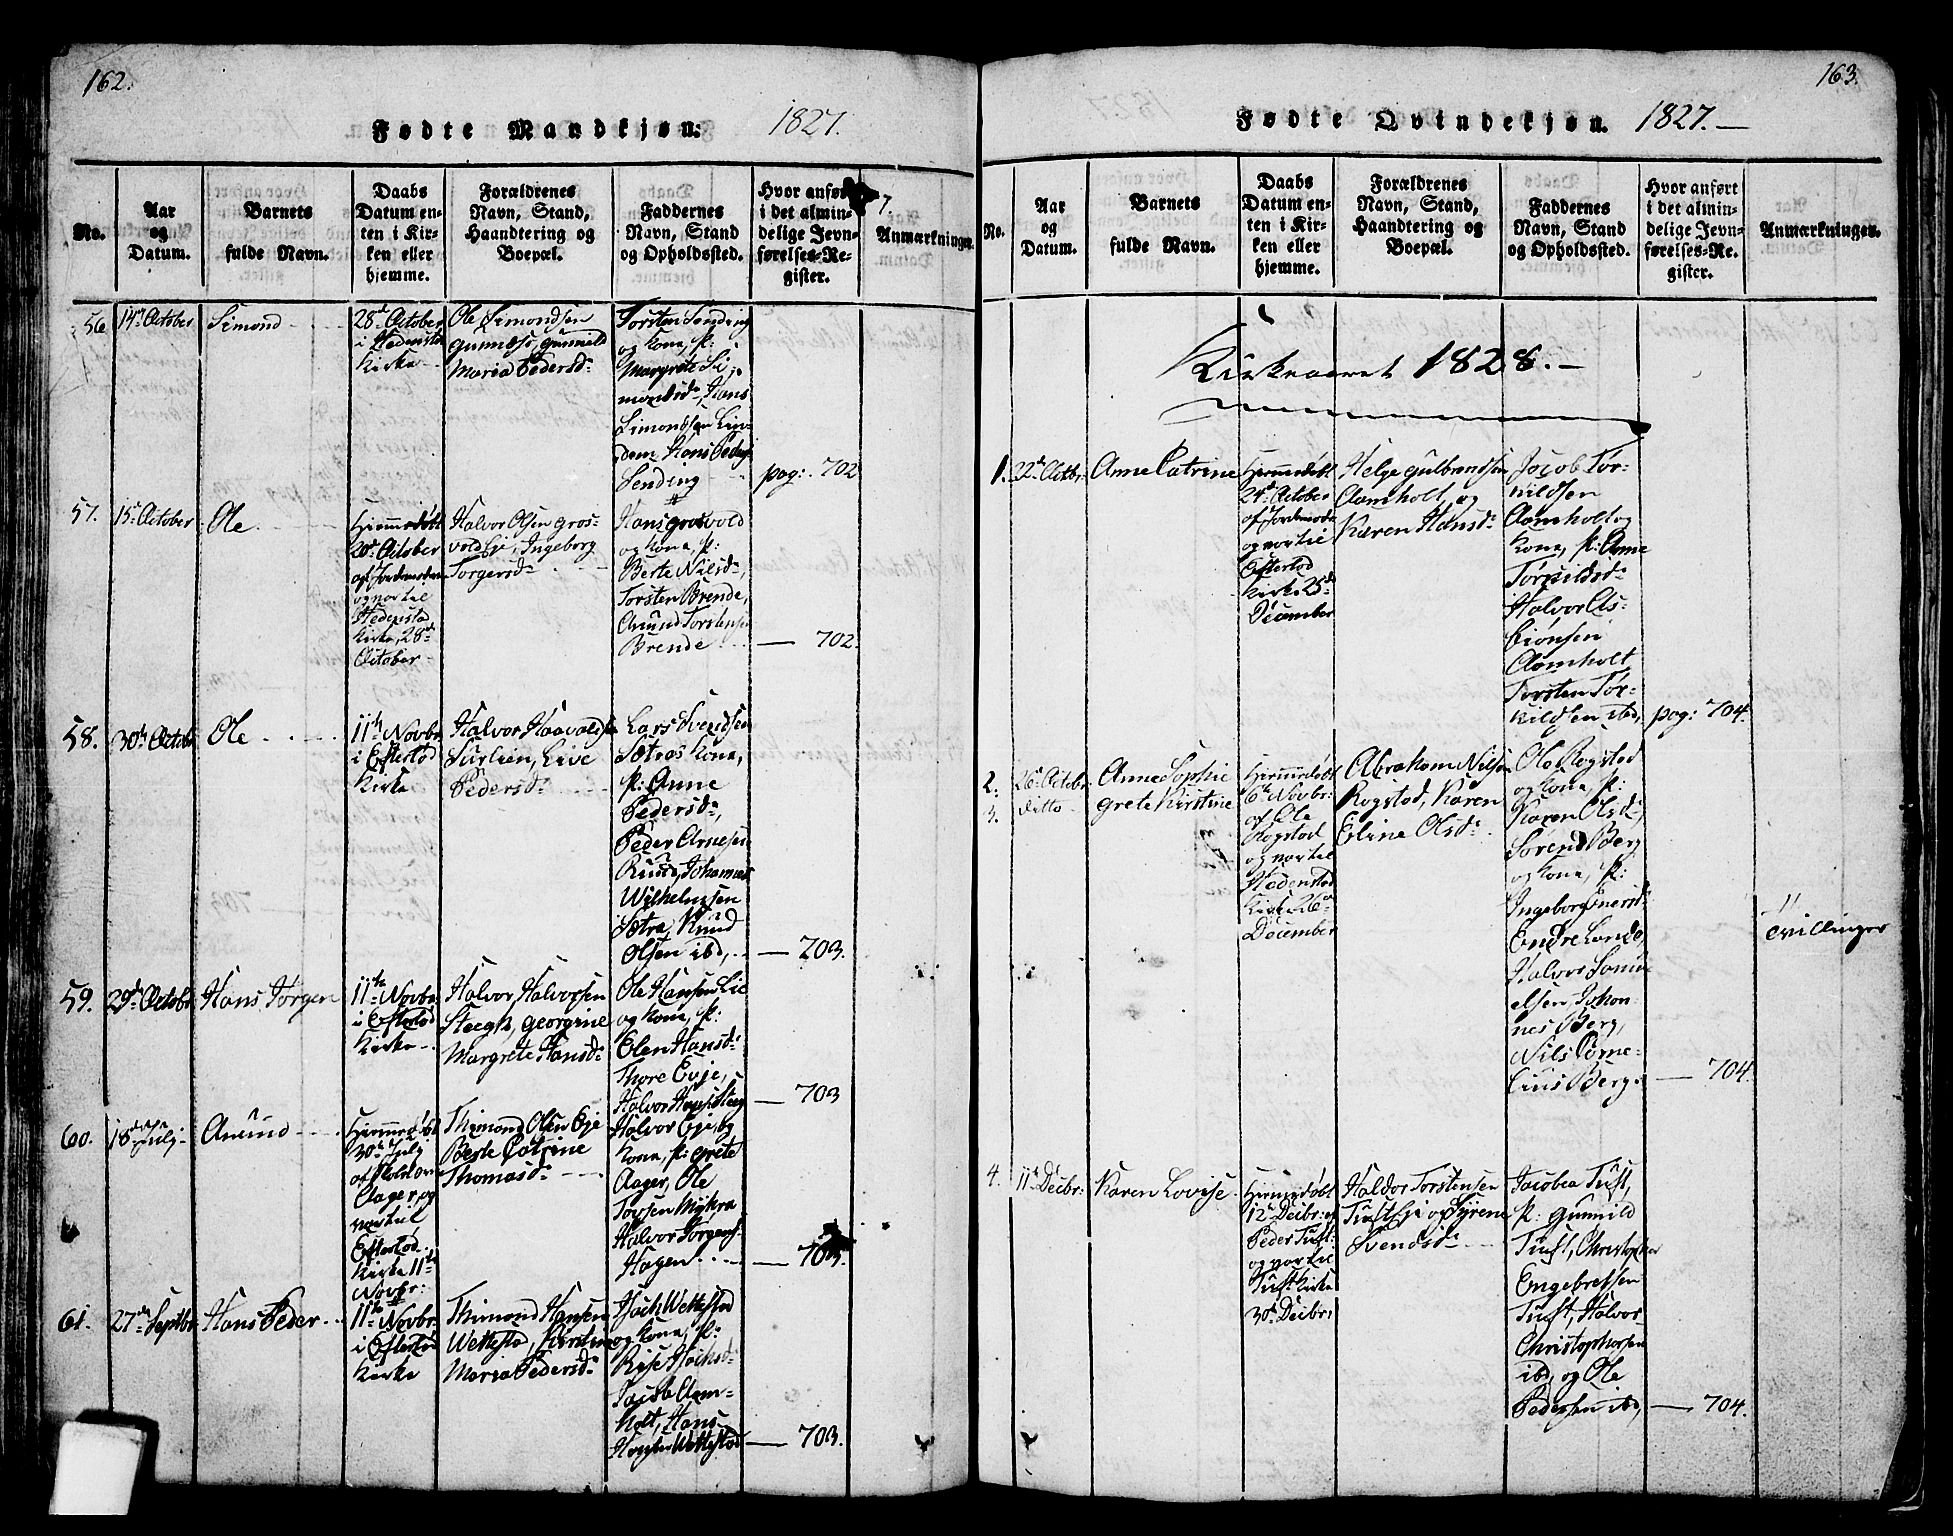 162.
Fødte Mandkjøn: 1827.
No.
Aar
og
Datum.
Barnets
fulde Navn.
Daabs
Datum en-
ten i Kir-
ken eller
hjemme.
Forældrenes
Navn, Stand,
Haandtering og
Boepæl.
Faddernes
Navn, Stand
og Opholdssted.
Hvor anført
i det almin-
delige Jevn-
førelses-Re-
gister.
Anmærkninger.
56.
14de October
Simond
28de October
i Hedenstad
Kirke
Ole Simondsen
Gunnild
Maria Pedersd.
Torsten Sending
og Kone, p:
Margrete Si-
mondsd., Hans
Simondsen Lin-
dem, Hans Peders.
Sending
pag: 702
57.
15de October
Ole
Hjemmedøbt
20de October
af Jordemoderen
og var til
Hedenstad
Kirke, 28de
October
Halvor Olsen Gros-
vold Eje, Ingeborg
Torgersd.
Hans Grosvold
og Kone, p:
Berte Nilsd.,
Torsten Brende,
Amund Torstensen
Brende
702.
58.
30te October
Ole
11te Novbr.
i Eftelød
Kirke
Halvor Haavaldsen
Surlien, Live
Pedersd.
Lars Svendsen
Sætras Kone,
p: Anne
Pedersd.,
Peder Arnesen
Ruud, Johannes
Wilhelmsen
Sætra, Knud
Olsen ibd,
703.
59.
29de October
Hans Jørgen
11te Novbr.
i Eftelød
Kirke
Halvor Halvorsen
Steegh, Georgine
Margrete Hansd.
Ole Hansen Lie
og Kone, p:
Elen Hansd.
Thore Evje,
Halvor Steeg
703
60.
18de July
Amund
Hjemmedøbt
30te July
af
Aager, og
var til
Eftelød
Kirke 11te
Novbr:
Thimond Olsen Eje
Berte Catrine
Thomasd.
Halvor Eje og
Kone, p: Grete
Aager, Ole
Toresen Mykra
Halvor Jørgens.
Hagen
703.
61.
27de Septbr.
Hans Peder
11te Novbr.
i Eftelød
Kirke
Thimond Hansen
Wettestad, Kirstine
Maria Pedersd.
Wettestad
og Kone, p:
Jacob Aam-
holt, Hans
Wettestad
703.
163.
Fødte Qvindekjøn. 1827.
No.
Aar
og
Datum.
Barnets
fulde Navn.
Daabs
Datum en-
ten i Kir-
ken eller
hjemme.
Forældrenes
Navn, Stand,
Haandtering og
Boepæl.
Faddernes
Navn, Stand
og Opholdssted.
Hvor anført
i det almin-
delige Jevn-
førelses-Re-
gister.
Anmærkninger.
Kirkeaaret 1828.
1.
22de Octbr.
Anne Catrine
Hjemmedøbt
24de October
af Jordemoderen
og var til
Eftelød
Kirke 25de
December
Helge Gulbrandsen
Aamholt, og
Karen Hansd.
Jacob Tør-
kildsen
Aamholt og
Kone, p: Anne
Tørkildsd.
Halvor As-
biønsen
Aamholt
Torsten Tør-
kildsen ibd,
pag: 704.
2.
3.
26de Octobr.
ditto
Anne Sophie
Grete Kirstine
Hjemmedøbt
6te Novbr:
af Ole
Rogstad
og var til
Hedenstad
Kirke 26de
December
Abraham Nilsen
Rogstad, Karen
Eline Olsd.
Ole Rogstad
og Kone, p:
Karen Olsd.,
Søren Berg
og Kone, p:
Ingeborg Enersd.
Endre Lande,
Halvor Samu-
elsen, Johan-
nes Berg,
Nils Corne-
lius Berg.
704.
tvillinger
4.
11te Decbr:
Karen Lovise
Hjemmedøbt
12te Decbr: af
Peder Tuft:
og var til
Tuft Kirke
30te Decbr:
Haldor Torstensen
Tuft Eje og Syrene
Svendsd.
Jacobea Tuft,
p: Gunnild
Tuft, Christopher
Engebretsen
Tuft, Halvor
Christophersen
ibd, og Ole
Pedersen ibd,
704.